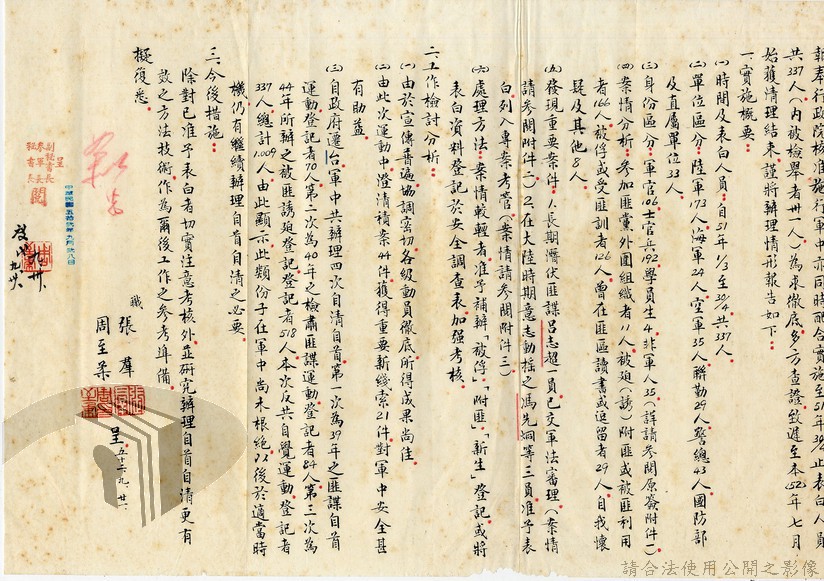 報奉行政院核准施行軍中亦同時配合實施至51年3/4止表白人員
共337人(內被檢舉者卅一人)為求徹底多方查證致遲至本(52)年七月
始獲清理結束謹將辦理情形報告如下:
一、實施概要:
(一)時間及表白人員:自51年1/3至3/4共337人
(二)單位區分:陸軍173人海軍24人空軍35人聯勤29人警總43人國防部
及直屬單位33人
(三)身份區分:軍官106士官兵192學員生4非軍人35(詳請參閱原簽附件一)
(四)案情分析:參加匪黨外圍組織者11人被迫(誘)附匪或被匪利用
者166人被俘或受匪訓者126人曾在匪區讀書或逗留者29人自我懷
疑及其他8人
(五)發現重要案件:1.長期潛伏匪諜呂志超一員已交軍法審理(案情
請參閱附件二)2.在大陸時期意志動搖之馮先炯等三員准予表
白列入專案考管(案情請參閱附件三)
(六)處理方法:案情較輕者准予補辦「被俘」「附匪」「新生」登記或將
表白資料登記於安全調查表加強考核
二、工作檢討分析:
(一)由於宣傳普遍協調密切各級動員徹底所得成果尚佳
(二)由此次運動中澄清積案44件獲得重要新綫索21件對軍中安全甚
有助益
(三)自政府遷台軍中共辦理四次自清自首第一次為39年之匪諜自首
運動登記者70人第二次為40年之檢肅匪諜運動登記者84人第三次為
44年所辦之被匪誘迫登記登記者518人本次反共自覺運動登記者
337人總計1,009人由此顯示此類份子在軍中尚未根絕以後於適當時
機仍有繼續辦理自首自清之必要
三、今後措施:
除對已准予表白者切實注意考核外並研究辦理自首自清更有
效之方法技術作為爾後工作之參考準備
擬復悉
職 張羣
周至柔
呈 五十二、九、廿一、
呈
副秘書長
參軍長
秘書長
閱
請合法使用公開之影像